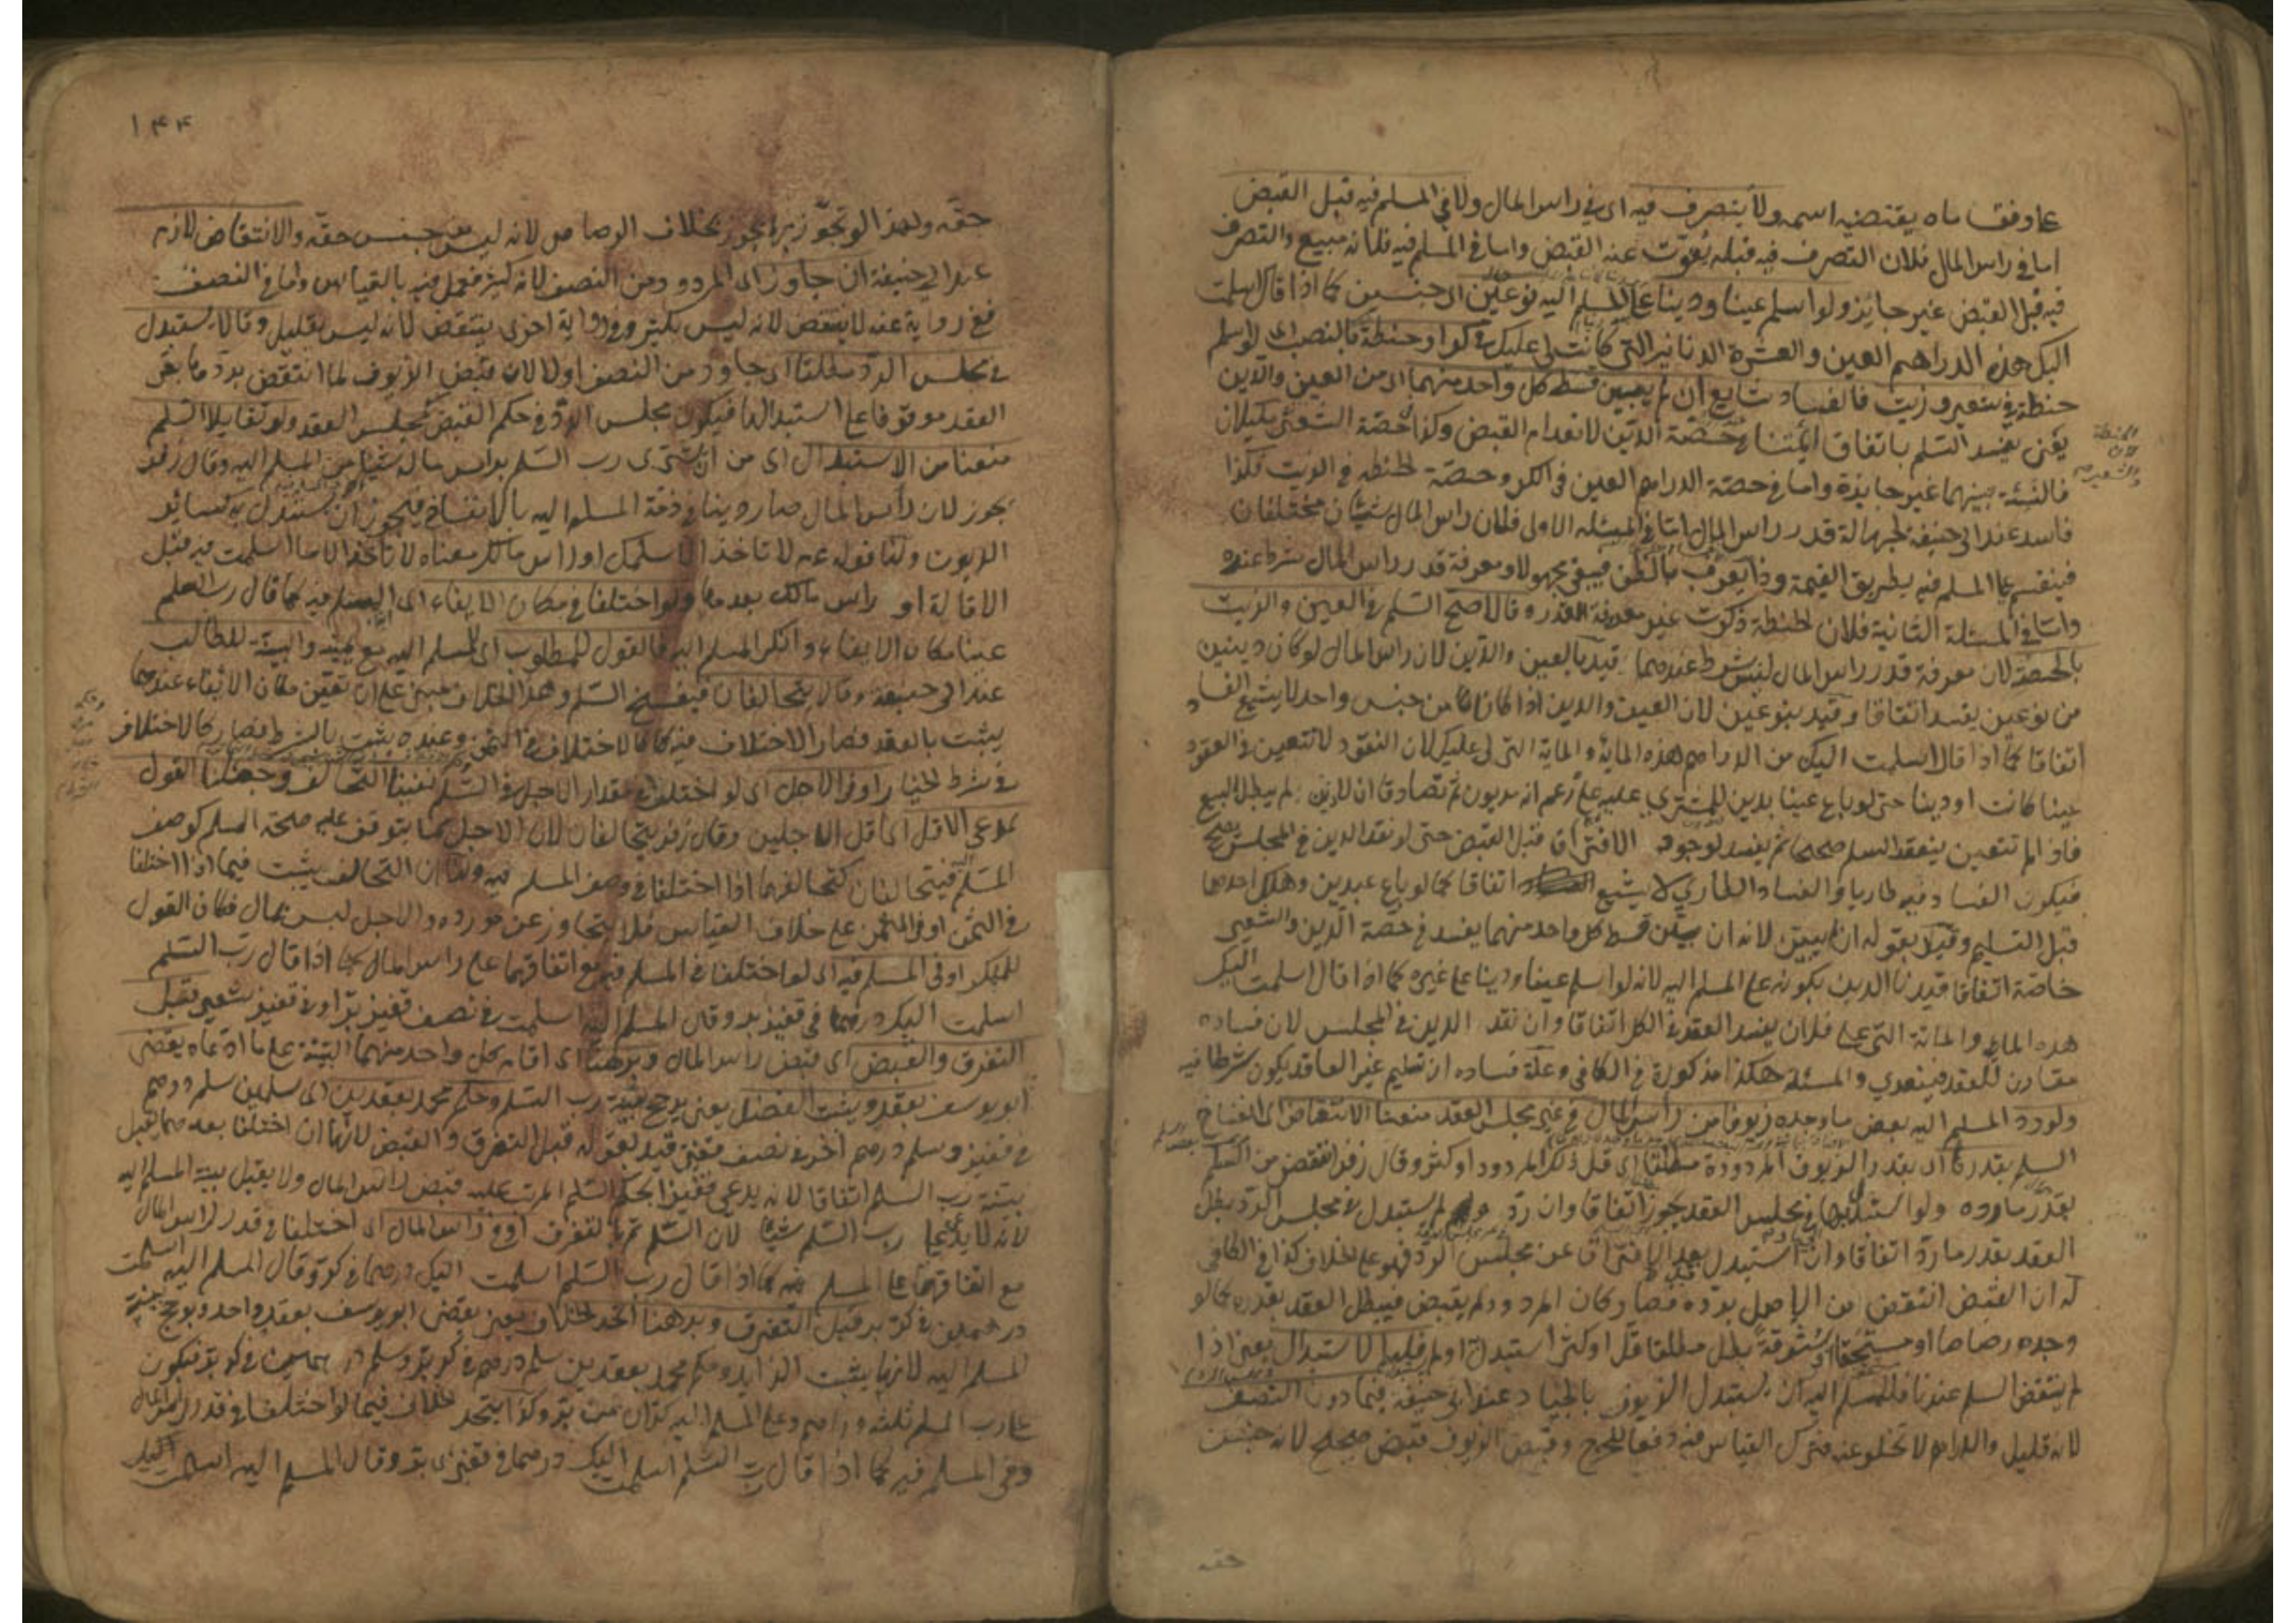 على وفق ما يقتضيه اسمه ولا يتصرف فيه اى فى راس المال ولا فى المسلم فيه قبل القبض
اما فى راس المال فلان التصرف فيه قبله يفوّت عنه القبض واما فى المسلم فيه فلانه مبيع والتصرف
فيه قبل القبض غير جايز ولو اسلم عينا ودينا على المسلم اليه نوعين اى جنسين كما اذا قال اسلمت
اليك هذه الدراهم العين والعشرة الدنانير التى كانت لى عليك فى كر او حنطة بالنصب اى لو اسلم
حنطة فى شعير وزيت فالفساد شايع ان لم يبين قسط كل واحد منهما اى من العين والدين
يعنى يفسد السلم باتفاق ائمتنا فى حصة الدين لانعدام القبض وكذا حصة الشعير مكيلان
فالنسئة بينهما غير جايزة واما فى حصة الدراهم العين فى الكر وحصة الحنطة فى الزيت فكذا
فاسد عند ابى حنيفة لجهالة قدر راس المال اما فى المسئلة الاولى فلان راس المال شيئان مختلفان
فينقسم على المسلم فيه بطريق القيمة وذا يعرف بالظن فيبقى مجهولا ومعرفة قدر راس المال شرط عنده
واما فى المسئلة الثانية فلان الحنطة ذكرت غير معرفة القدر وقالا صح السلم فى العين والزيت
بالحصة لان معرفة قدر راس المال ليس بشرط عندهما قيد بالعين والدين لان راس المال لو كان دينين
من نوعين يفسد اتفاقا وقيد بنوعين لان العين والدين اذا كانا من جنس واحد لا يشيع الفساد
اتفاقا كما اذا قال اسلمت اليك من الدراهم هذه الماية والماية التى لى عليك لان النقود لا تتعين فى العقود
عينا كانت او دينا حتى لو باع عينا بدين للمشترى عليه على زعم انه مديون ثم تصادقا ان لا دين لم يبطل البيع
فاذا لم تتعين ينعقد السلم صحيحا ثم يفسد لوجود الافتراق قبل القبض حتى لو نقد الدين فى المجلس يصح
فيكون الفساد فيه طاريا والفساد الطارى لا يشيع اتفاقا كما لو باع عبدين وهلك احدهما
قبل التسليم وقيد بقوله ان لم يبين لانه ان بين قسط كل واحد منهما يفسد فى حصة الدين والشعير
خاصة اتفاقا قيدنا الدين بكونه على المسلم اليه لانه لو اسلم عينا ودينا على غيره كما اذا قال اسلمت اليك
هذه الماية والماية التى على فلان يفسد العقد فى الكل اتفاقا وان نقد الدين فى المجلس لان فساده
مقارن للعقد فيتعدى والمسئلة هكذا مذكورة فى الكافى وعلة فساده ان تسليم غير العاقد يكون شرطا فيه
ولو رد المسلم اليه بعض ما وجده زيوفا من راس المال فى غير مجلس العقد منعنا الانتقاض اى انفساخ
السلم بقدره اى بقدر الزيوف المردودة مطلقا اى قل ذلك المردود او كثر وقال زفر انتقض من السلم
بقدر ما رده ولو استبدلها فى مجلس العقد يجوز اتفاقا وان رد ولم يستبدل فى مجلس الرد بطل
العقد بقدر ما رد اتفاقا وان استبدل بعد الافتراق عن مجلس الرد فهو على الخلاف كذا فى الكافى
له ان القبض انتقض من الاصل برده فصار كان المردود لم يقبض فيبطل العقد بقدره كما لو
وجده رصاصا او مستحقا او ستوقة بطل مطلقا قل او كثر استبدل او لم فلهم الاستبدال يعنى اذا
لم ينتقض السلم عندنا فللمسلم اليه ان يستبدل الزيوف بالجياد عند ابى حنيفة فيما دون النصف
لانه قليل والدراهم لا تخلو عنه فترك القياس فيه دفعا للحرج وقبض الزيوف قبض صحيح لانه جنس
حقه
١٤٤
حقه ولهذا لو تجوّز به يجوز بخلاف الرصاص لانه ليس من جنس حقه والانتقاض لازم
عند ابى حنيفة ان جاوز اى المردود من النصف لانه كثير فعمل فيه بالقياس واما فى النصف
ففى رواية عنه لا ينتقض لانه ليس بكثير وفى رواية اخرى ينتقض لانه ليس بقليل وقالا يستبدل
فى مجلس الرد مطلقا اى جاوز من النصف اولا لان قبض الزيوف لما انتقض برد ما بقى
العقد موقوفا على استبدالها فيكون مجلس الرد فى حكم القبض كمجلس العقد ولو تقايلا السلم
منعنا من الاستبدال اى من ان يشترى رب السلم براس ماله شيئا من المسلم اليه وقال زفر
يجوز لان راس المال صار دينا فى ذمة المسلم اليه بالانفساخ فيجوز ان يستبدل به كسائر
الديون ولنا قوله عم لا تاخذ الا سلمك او راس مالك معناه لا تاخذ الا ما اسلمت فيه قبل
الاقالة او راس مالك بعدها ولو اختلفا فى مكان الايفاء اى المسلم فيه كما قال رب السلم
عينا مكان الايفاء وانكر المسلم اليه فالقول للمطلوب اى للمسلم اليه مع يمينه والبينة للطالب
عند ابى حنيفة وقالا يتحالفان فيفسخ السلم وهذا الخلاف مبنى على ان تعين مكان الايفاء عندهما
يثبت بالعقد فصار الاختلاف فيه كالاختلاف فى الثمن وعنده يثبت بالشرط فصار كالاختلاف
فى شرط الخيار او فى الاجل اى لو اختلفا فى مقدار الاجل فى السلم نفينا التحالف وجعلنا القول
لمدعى الاقل اى اقل الاجلين وقال زفر يتحالفان لان الاجل مما يتوقف عليه صحة السلم كوصف
المسلم فيتحالفان كتحالفهما اذا اختلفا فى وصف المسلم فيه ولنا ان التحالف يثبت فيما اذا اختلفا
فى الثمن او فى المثمن على خلاف القياس فلا يتجاوز عن مورده والاجل ليس بمال فكان القول
للمنكر او فى المسلم فيه اى لو اختلفا فى المسلم فيه مع اتفاقهما على راس المال كما اذا قال رب السلم
اسلمت اليك درهما فى قفيز بر وقال المسلم اليه اسلمت فى نصف قفيز بر او فى قفيز شعير قبل
التفرق والقبض اى قبض راس المال وبرهنا اى اقام كل واحد منهما البينة على ما ادعاه يقضى
ابو يوسف بعقد ويثبت الفضل يعنى يرجح بينة رب السلم وحكم محمد بعقدين اى سلمين سلم درهم
فى قفيز وسلم درهم آخر فى نصف قفيز قيد بقوله قبل التفرق والقبض لانهما ان اختلفا بعدهما يقبل
بينة رب السلم اتفاقا لانه يدعى قفيزا بحكم السلم المرتب عليه قبض راس المال ولا يقبل بينة المسلم اليه
لانه لا يدعى على رب السلم شيئا لان السلم تم بالتفرق او فى راس المال اى اختلفا فى قدر راس المال
مع اتفاقهما على المسلم فيه كما اذا قال رب السلم اسلمت اليك درهما فى كر وقال المسلم اليه اسلمت
درهمين فى كر بر قبل التفرق وبرهنا اتحد الخلاف يعنى يقضى ابو يوسف بعقد واحد ويرجح بينة
المسلم اليه لانها يثبت الزايد وحكم محمد بعقدين سلم درهم فى كر بر وسلم درهمين فى كر بر فيكون
على رب السلم ثلثة دراهم وعلى المسلم اليه كران من بر وكذا يتحد الخلاف فيما لو اختلفا فى قدر راس المال
وفى المسلم فيه كما اذا قال رب السلم اسلمت اليك درهما فى قفيزى بر وقال المسلم اليه اسلمت اليك